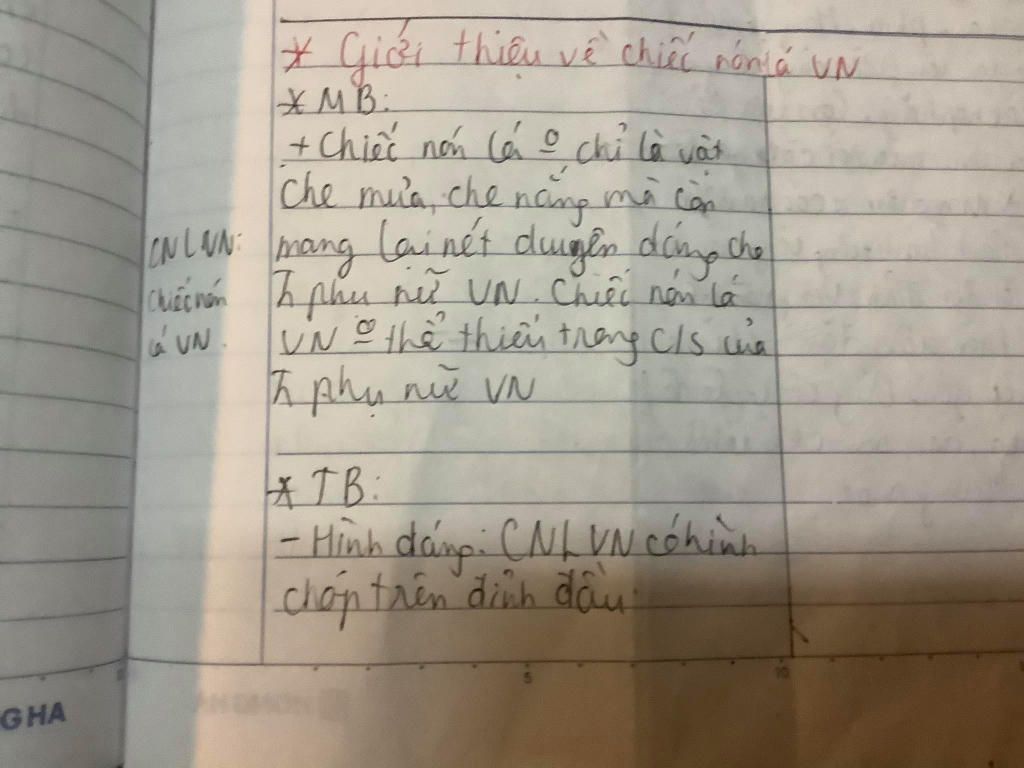 * Giới thiệu về chiếc nón lá VN
* MB:
+ Chiếc nón lá º chỉ là vật
che mưa, che nắng mà còn
mang lại nét duyên dáng cho
phụ nữ VN. Chiếc nón lá
VN º thể thiếu trong c/s của
phụ nữ VN
CNLVN:
chiếc nón
lá VN.
* TB:
- Hình dáng: CNLVN có hình
chóp trên đỉnh đầu
5
10
GHA